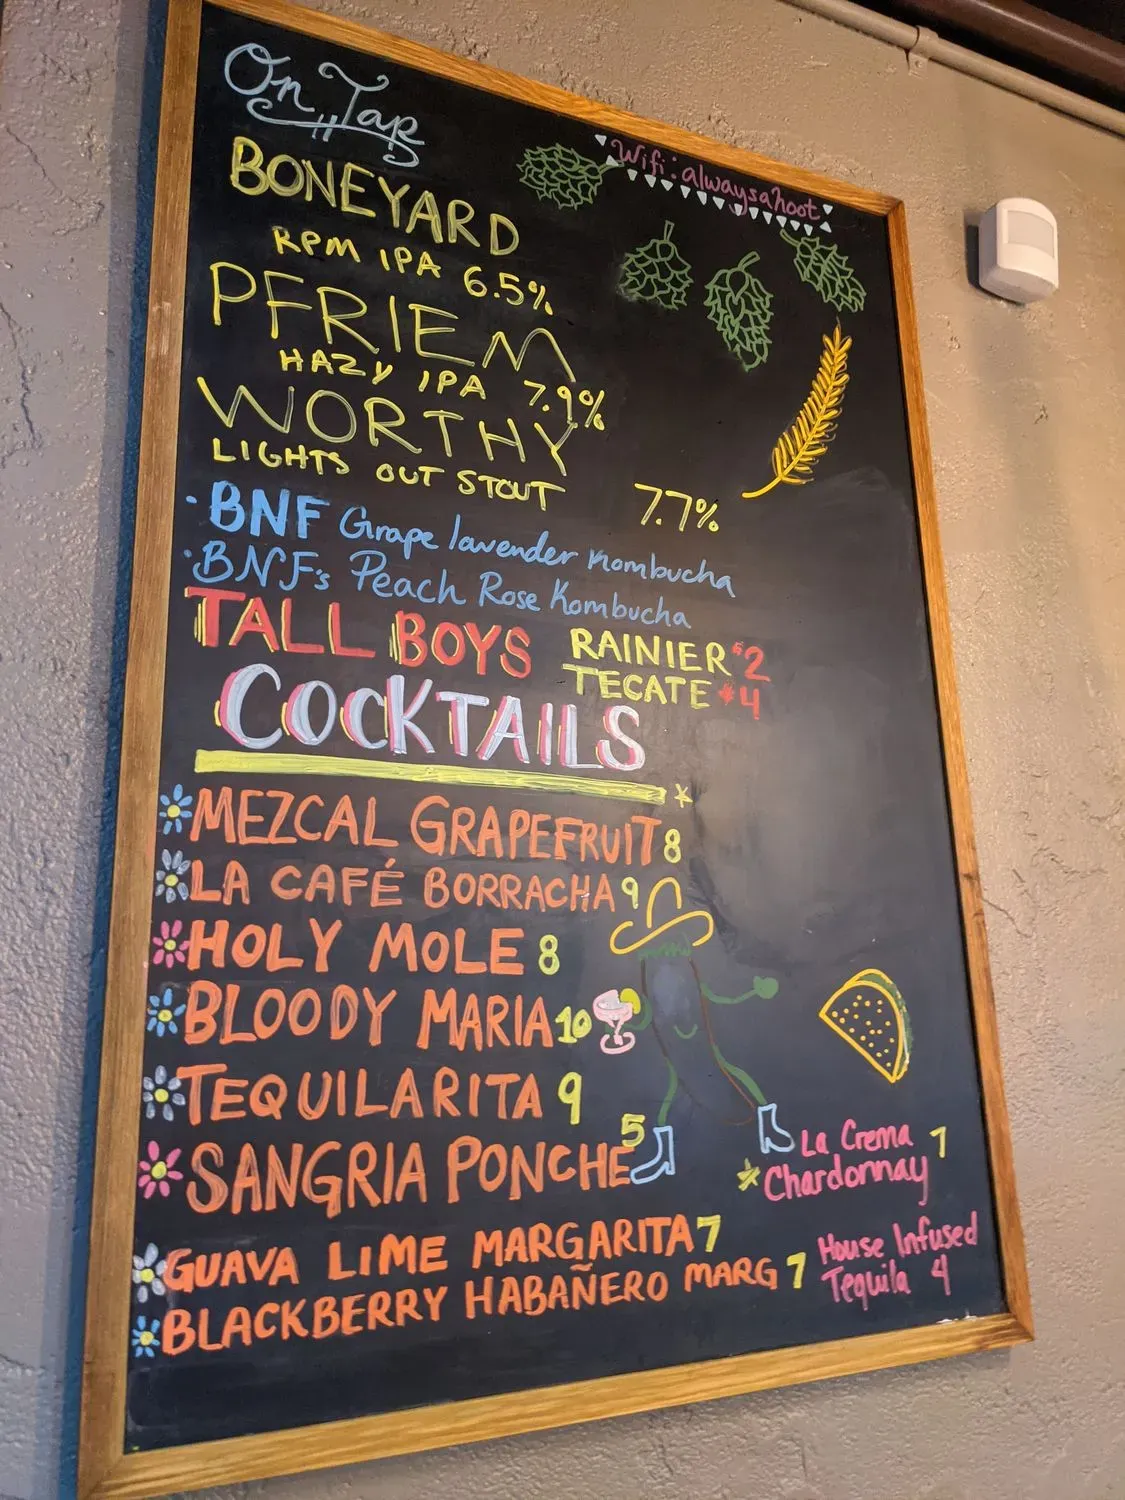 On Tap
Wifi: alwaysahoot
BONEYARD
RPM IPA 6.5%
PFRIEM
HAZY IPA 7.9%
WORTHY
LIGHTS OUT STOUT 7.7%
· BNF Grape lavender Kombucha
· BNF's Peach Rose Kombucha
TALL BOYS RAINIER $2
TECATE $4
COCKTAILS
MEZCAL GRAPEFRUIT 8
LA CAFÉ BORRACHA 9
HOLY MOLE 8
BLOODY MARIA 10
TEQUILARITA 9
SANGRIA PONCHE 5
La Crema 7
Chardonnay
GUAVA LIME MARGARITA 7
BLACKBERRY HABAÑERO MARG 7
House Infused
Tequila 4